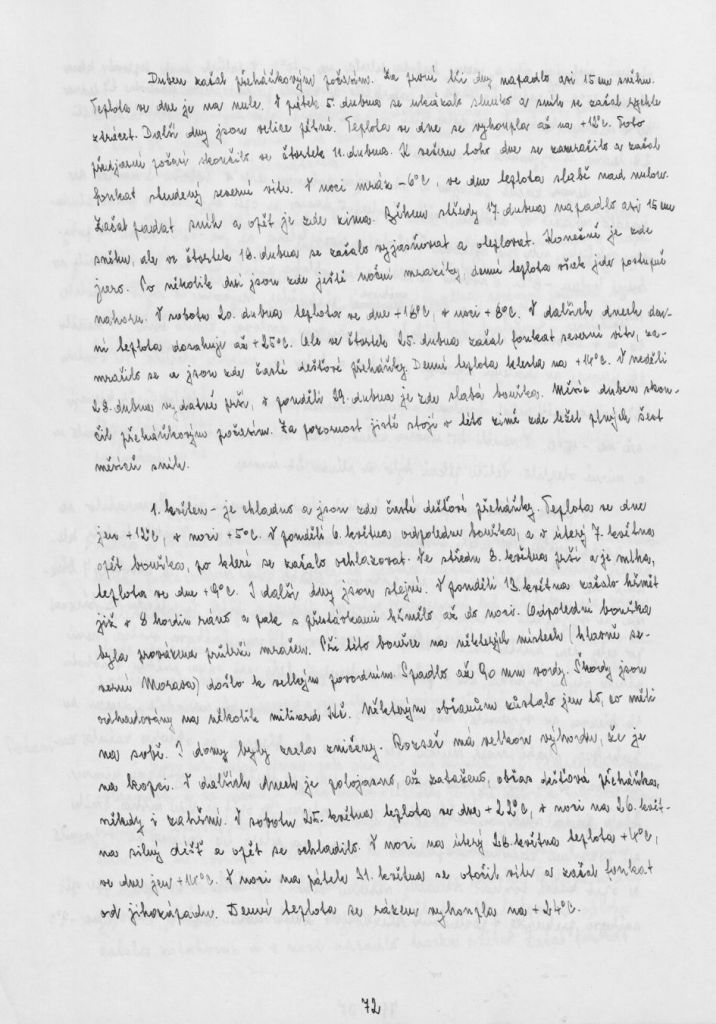 Duben začal přeháňkovým počasím. Za první tři dny napadlo asi 15 cm sněhu.
Teplota ve dne je na nule. V pátek 5. dubna se ukázalo slunko a sníh se začal rychle
ztrácet. Další dny jsou velice pěkné. Teplota ve dne se vyhoupla až na +12°C. Toto
překrásné počasí skončilo ve čtvrtek 11. dubna. K večeru toho dne se zamračilo a začal
foukat studený severní vítr. V noci mráz -6°C, ve dne teplota slabě nad nulou.
Začal padat sníh a opět je zde zima. Během středy 17. dubna napadlo asi 15 cm
sněhu, ale ve čtvrtek 18. dubna se začalo vyjasňovat a oteplovat. Konečně je zde
jaro. Po několik dní jsou zde ještě noční mrazíky, denní teplota však jde postupně
nahoru. V sobotu 20. dubna teplota ve dne +18°C, v noci +8°C. V dalších dnech den-
ní teplota dosahuje až +25°C. Ale ve čtvrtek 25. dubna začal foukat severní vítr, za-
mračilo se a jsou zde časté dešťové přeháňky. Denní teplota klesla na +14°C. V neděli
28. dubna vydatně prší, v pondělí 29. dubna je zde slabá bouřka. Měsíc duben skon-
čil přeháňkovým počasím. Za pozornost jistě stojí v této zimě zde ležel plných šest
měsíců sníh.
1. květen - je chladno a jsou zde časté dešťové přeháňky. Teplota ve dne
jen +12°C, v noci +5°C. V pondělí 6. května odpoledne bouřka, a v úterý 7. května
opět bouřka, po které se začalo ochlazovat. Ve středu 8. května prší a je mlha,
teplota ve dne +9°C. I další dny jsou stejné. V pondělí 13. května začalo hřmět
již v 8 hodin ráno a pak s přestávkami hřmělo až do noci. Odpolední bouřka
byla provázena průtrží mračen. Při této bouřce na některých místech (hlavně se-
verní Morava) došlo k velkým povodním. Spadlo až 90 mm vody. Škody jsou
odhadovány na několik miliard Kč. Některým občanům zůstalo jen to, co měli
na sobě. I domy byly zcela zničeny. Rozseř má velkou výhodu, že je
na kopci. V dalších dnech je polojasno, až zataženo, občas dešťová přeháňka,
někdy i zahřmí. V sobotu 25. května teplota ve dne +22°C, v noci na 26. květ-
na silný déšť a opět se ochladilo. V noci na úterý 28. května teplota +4°C,
ve dne jen +14°C. V noci na pátek 31. května se otočil vítr a začal foukat
od jihozápadu. Denní teplota se rázem vyhoupla na +24°C.
72